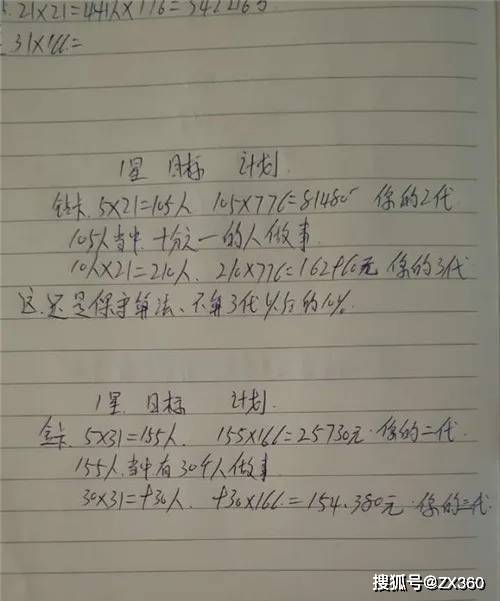 21×21=441人×776=342216元
31×166=
1星 目标 计划
钻卡 5×21=105人 105×776=81480 你的2代
105人当中 十分之一的人做事
10人×21=210人、210×776=162960元 你的3代
这还是保守算法、不算3代以后的10%
1星 目标 计划
金卡 5×31=155人 155×166=25730元 你的二代
155人当中有30个人做事
30×31=930人、930×166=154.380元 你的三代
搜狐号@ZX360